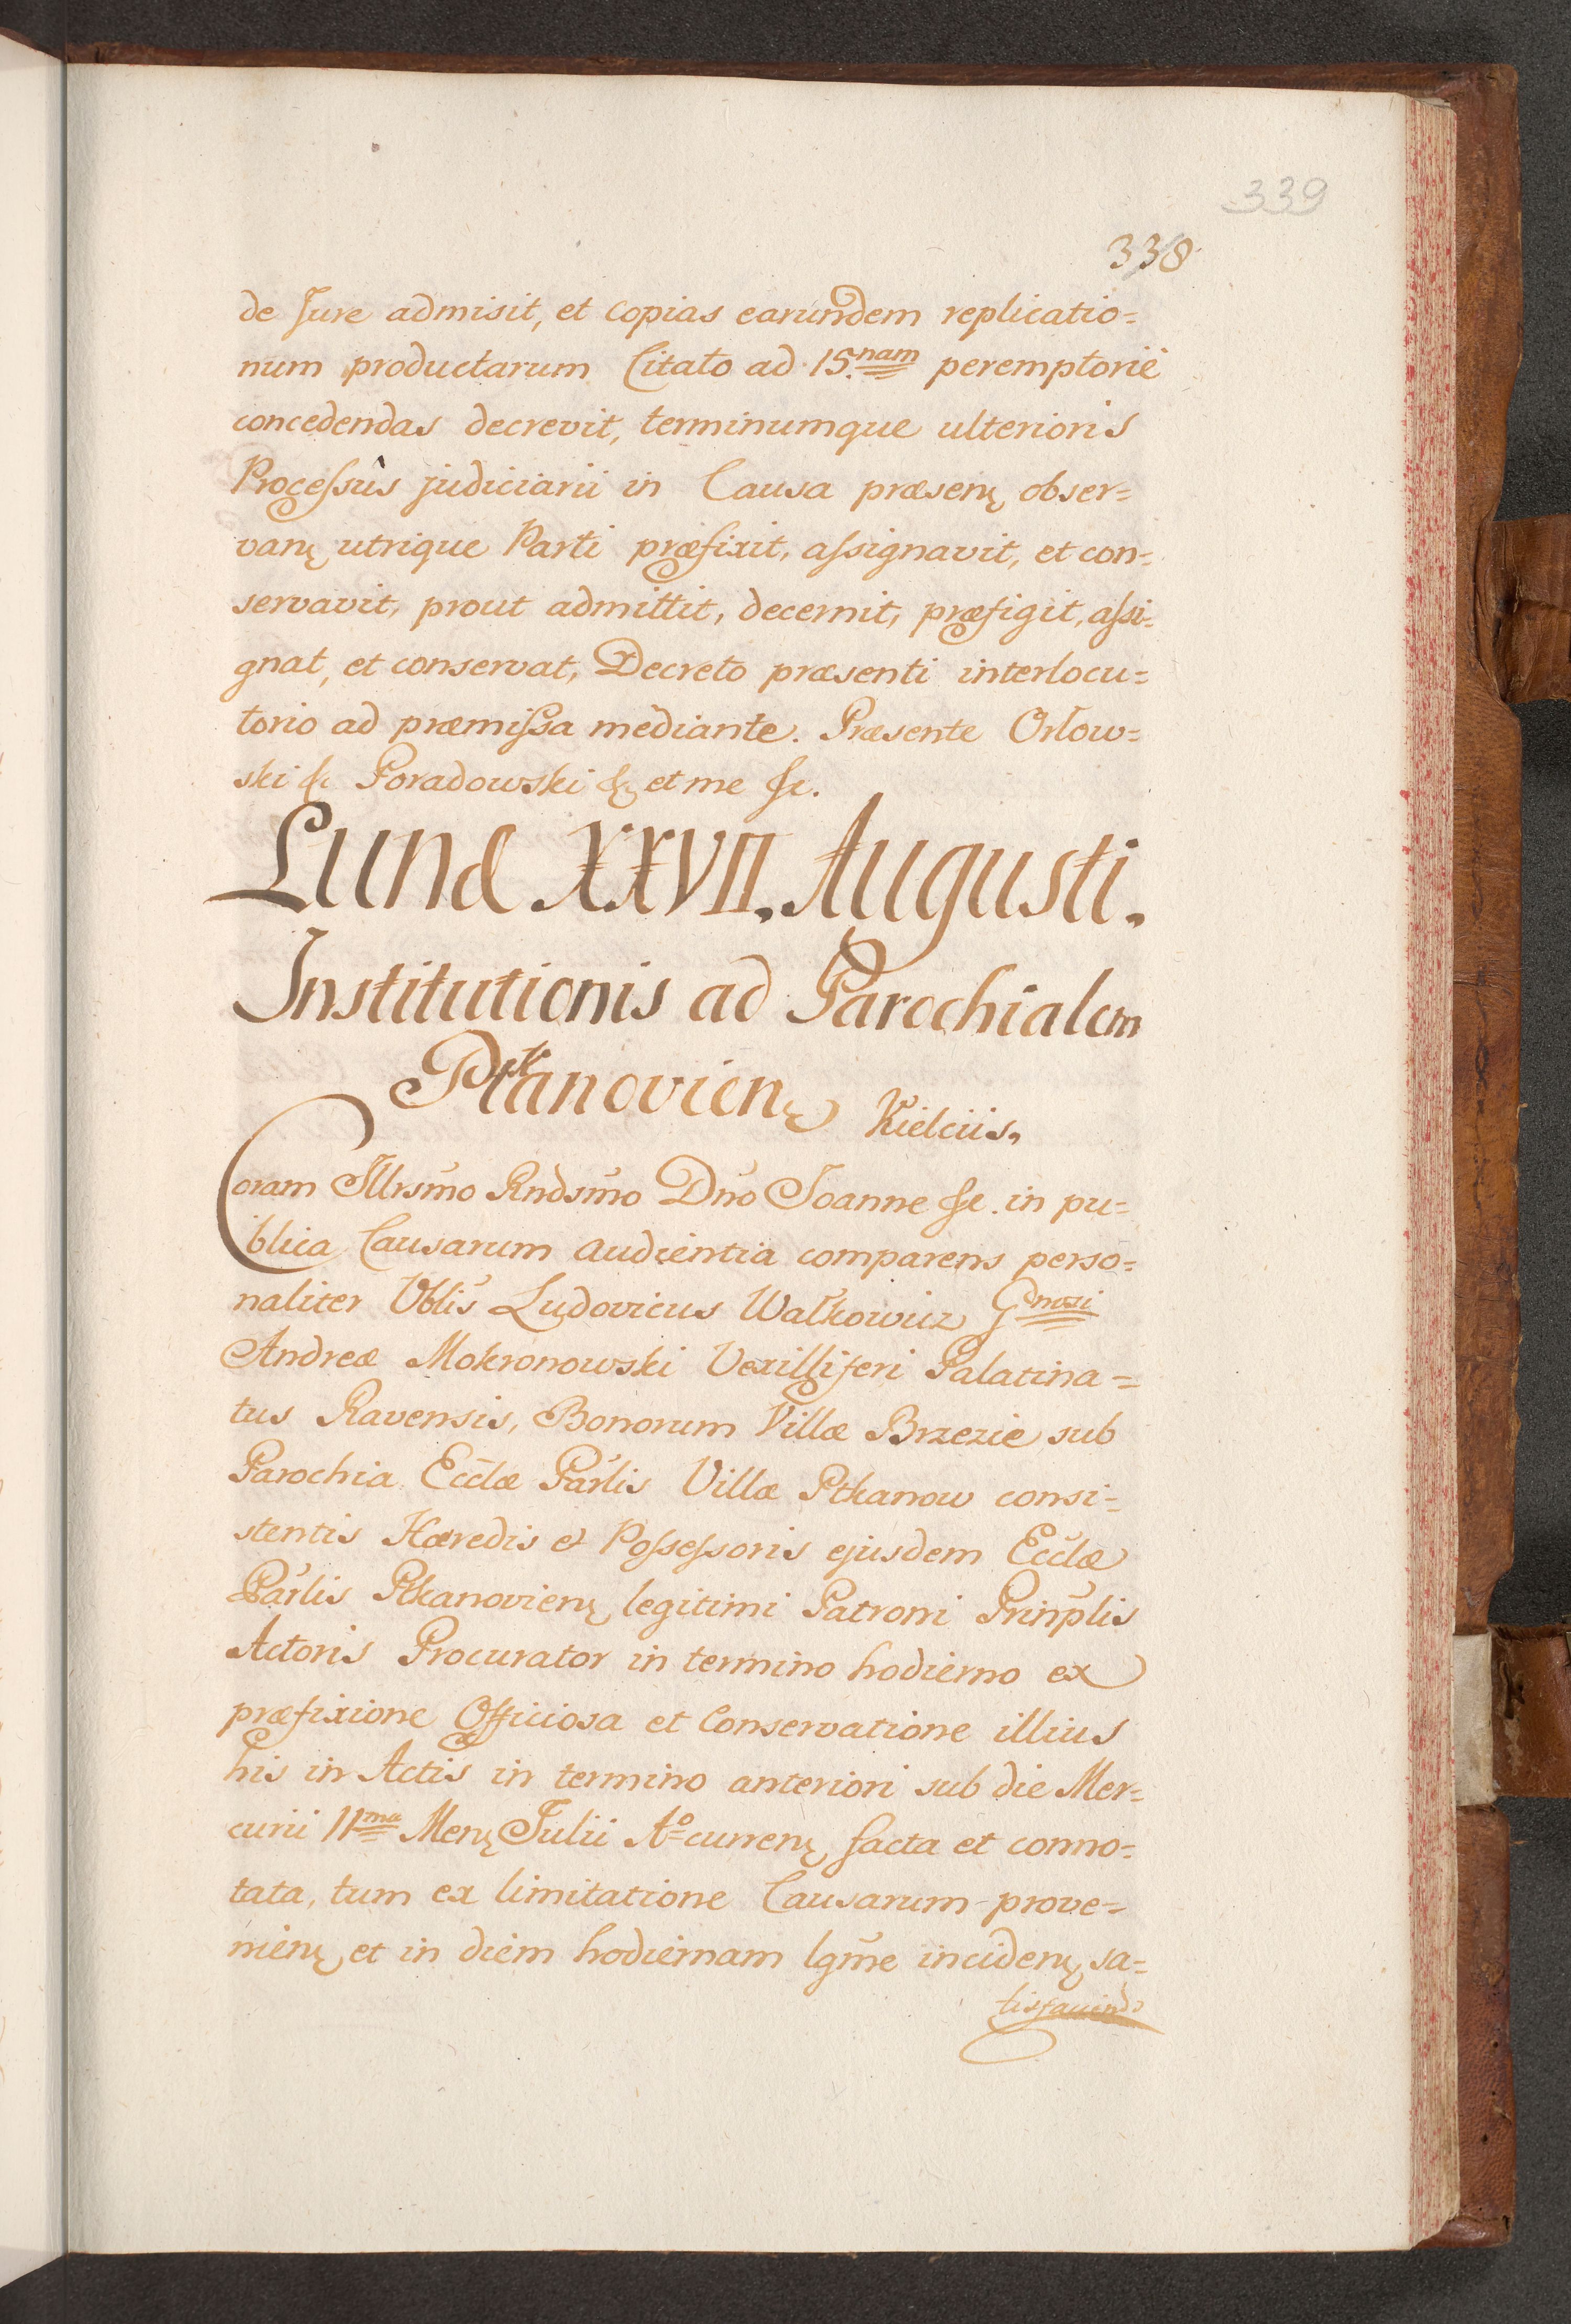 339
338
de Jure admisit, et copias earundem replicatio=
num productarum Citato ad 15.nam peremptorie
concedendas decrevit, terminumque ulterioris
Processûs judiciarii in Causa præsenę obser=
vanę utrique Parti præfixit, assignavit, et con=
servavit, prout admittit, decernit, præfigit, assi=
gnat, et conservat, Decreto præsenti interlocu=
torio ad præmissa mediante. Præsente Orłow=
ski &c Poradowski &c et me &c.
Lunæ XXVII. Augusti.
Institutionis ad Parochialem
Ptkanovienę Kielciis.
Coram Illrsmo Rndsmo Dño Joanne &c. in pu=
blica Causarum audientia comparens perso=
naliter Nblis Ludovicus Walkowicz Gnosi
Andreæ Mokronowski Vexilliferi Palatina=
tus Ravensis, Bonorum Villæ Brzezie sub
Parochia Ecclæ Parlis Villæ Ptkanow consi=
stentis Hæredis et Possessoris ejusdem Ecclæ
Parlis Ptkanovienę legitimi Patroni Prinplis
Actoris Procurator in termino hodierno ex
præfixione Officiosa et Conservatione illius
his in Actis in termino anteriori sub die Mer=
curii 11ma Menę Julii Aº currenę facta et conno=
tata, tum ex limitatione Causarum prove=
nienę et in diem hodiernam lgme incidenę, sa=
tisfaciendo